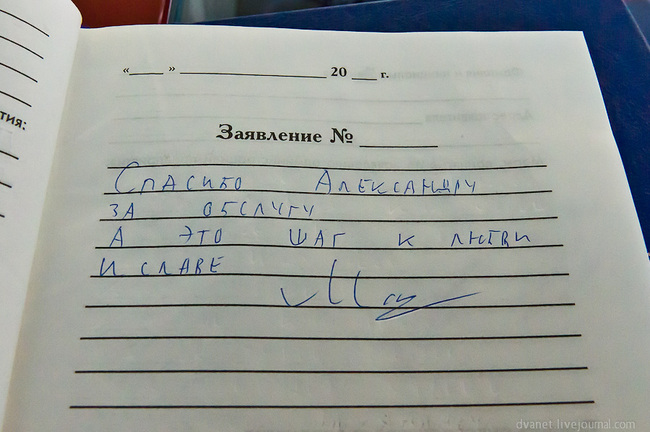 тия:
« ___ » ____________________ 20 ___ г.
Заявление № ________
Спасибо Александру
за обслугу
а это шаг к любви
и славе
dvanet.livejournal.com